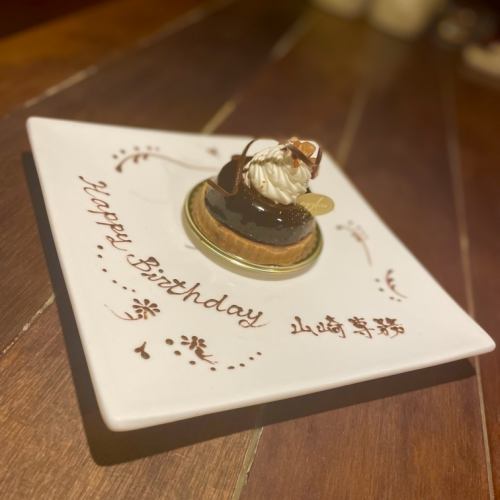 Happy Birthday
山崎専務